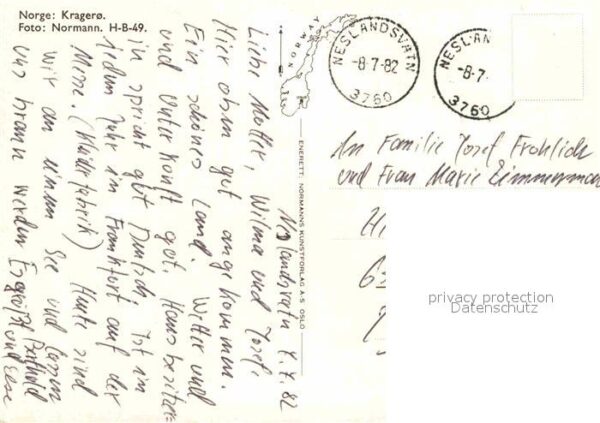 Norge: Kragerø.
Foto: Normann. H-B-49.
NORWAY
NESLANDSVATN
-8-7-82
3760
NESLAN
-8-7-
3760
ENERETT: NORMANNS KUNSTFORLAG A-S OSLO
Neslandsvatn 4.7.82
Liebe Mutter, Wilma und Josef,
Hier oben gut angekommen.
Ein schönes Land. Wetter und
und Unterkunft gut. Hausbesitzer
in spricht gut Deutsch ist in
jedem Jahr in Frankfurt auf der
Messe. Heute sind
wir an einem See und lassen
uns braun werden Es grüßt Berthold
und Else
An Familie Josef Frohlich
und Frau Marie Zimmerman
privacy protection
Datenschutz